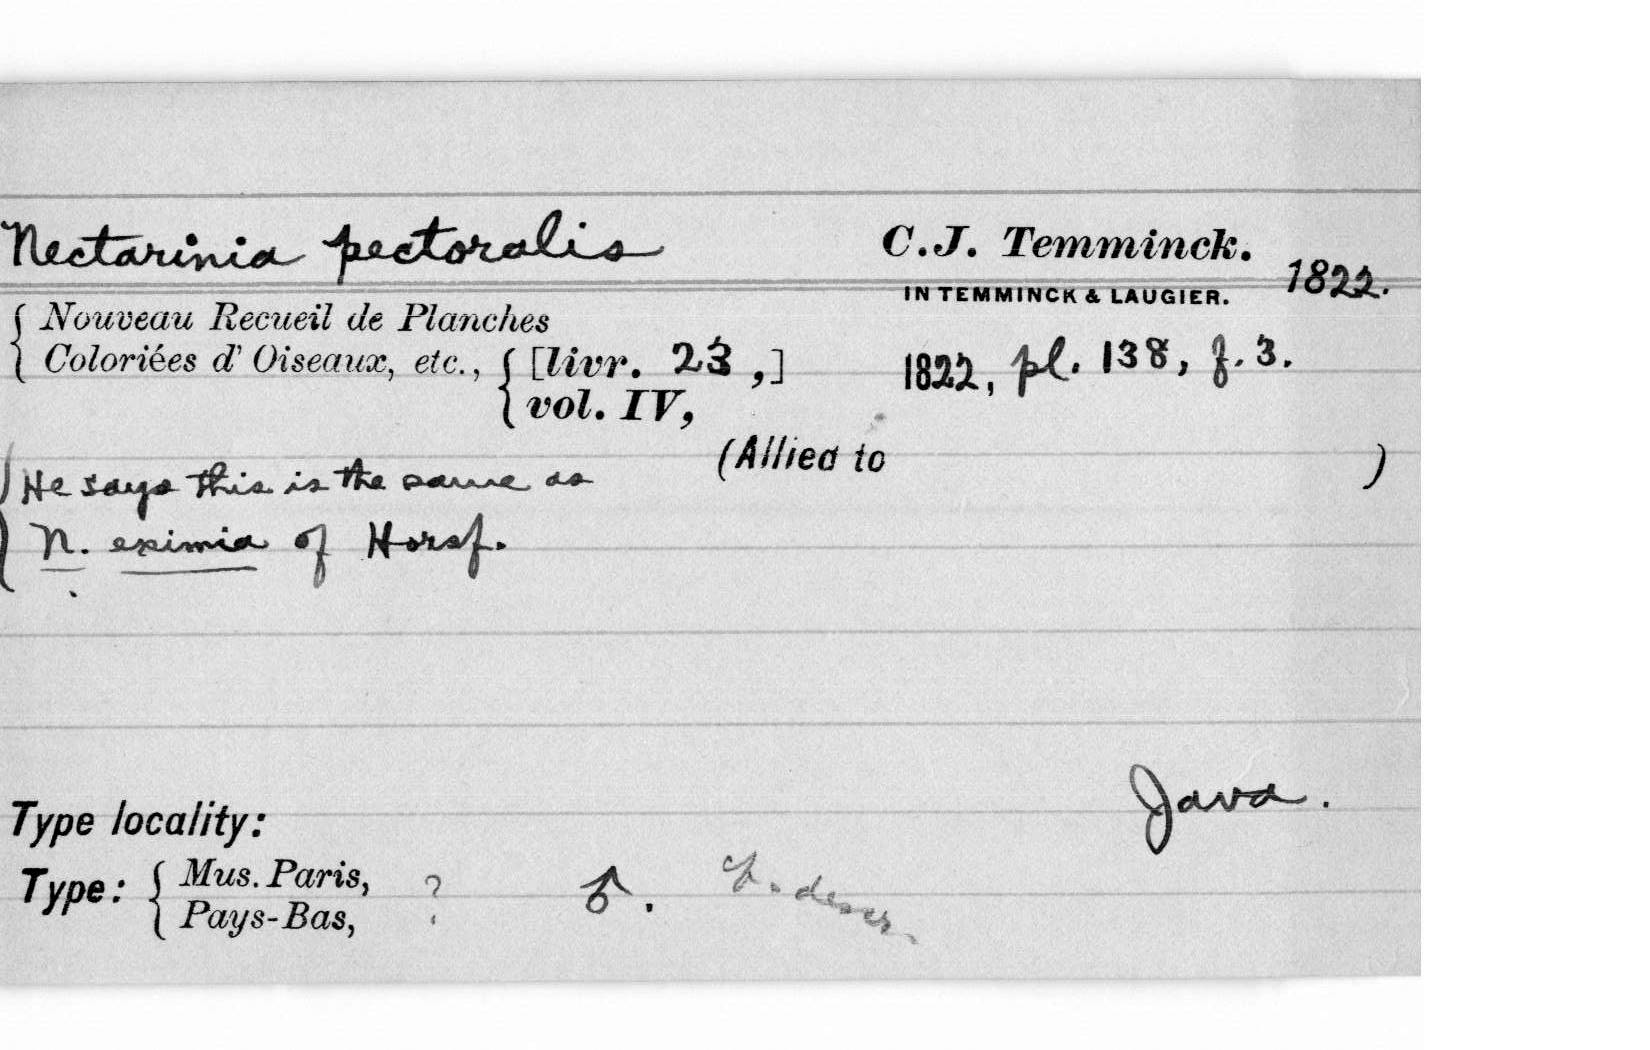 Nectarinia pectoralis C.J. Temminck.
IN TEMMINCK & LAUGIER. 1822.
{ Nouveau Recueil de Planches
Coloriées d' Oiseaux, etc., { [livr. 23 ,] 1822, pl. 138, f. 3.
vol. IV,
(Allied to )
(He says this is the same as
N. eximia of Horsf.
Java.
Type locality:
Type: { Mus. Paris, ? ♂. descr.
Pays-Bas,